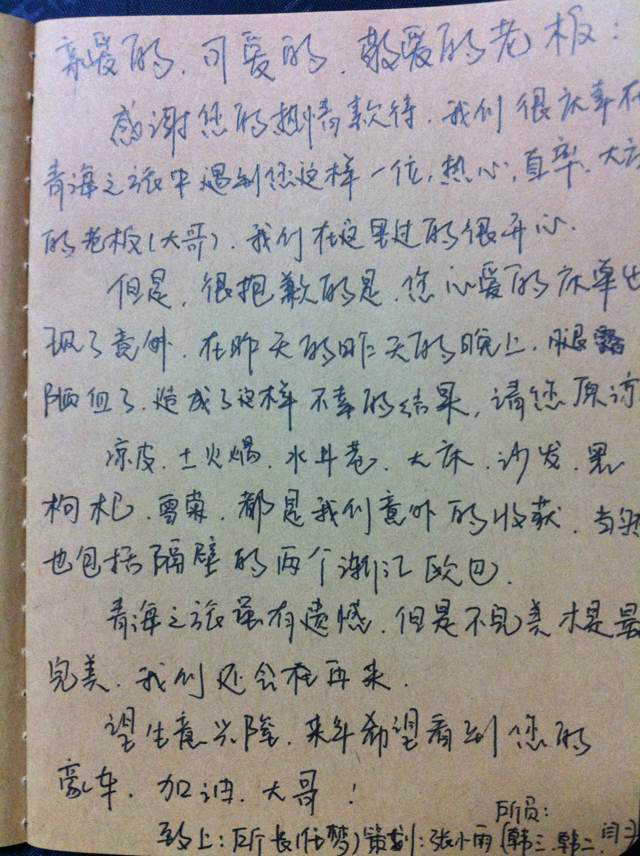 亲爱的、可爱的、敬爱的老板：
感谢您的热情款待，我们很庆幸在
青海之旅中遇到您这样一位，热心，直率、大方
的老板（大哥），我们在这里过的很开心.
但是，很抱歉的是，您心爱的床单出
现了意外，在昨天的昨天的晚上，
造成了这样不幸的结果，请您原谅
凉皮、土火锅、水井巷、大床、沙发、黑
枸杞、雪菊，都是我们意外的收获，当然
也包括隔壁的两个浙江欧巴.
青海之旅虽有遗憾，但是不完美才是最
完美，我们还会在再来.
望生意兴隆，来年希望看到您的
豪车，加油，大哥！
所员：
致上：所长(任梦)策划：张小雨(韩三、韩二、闫二)